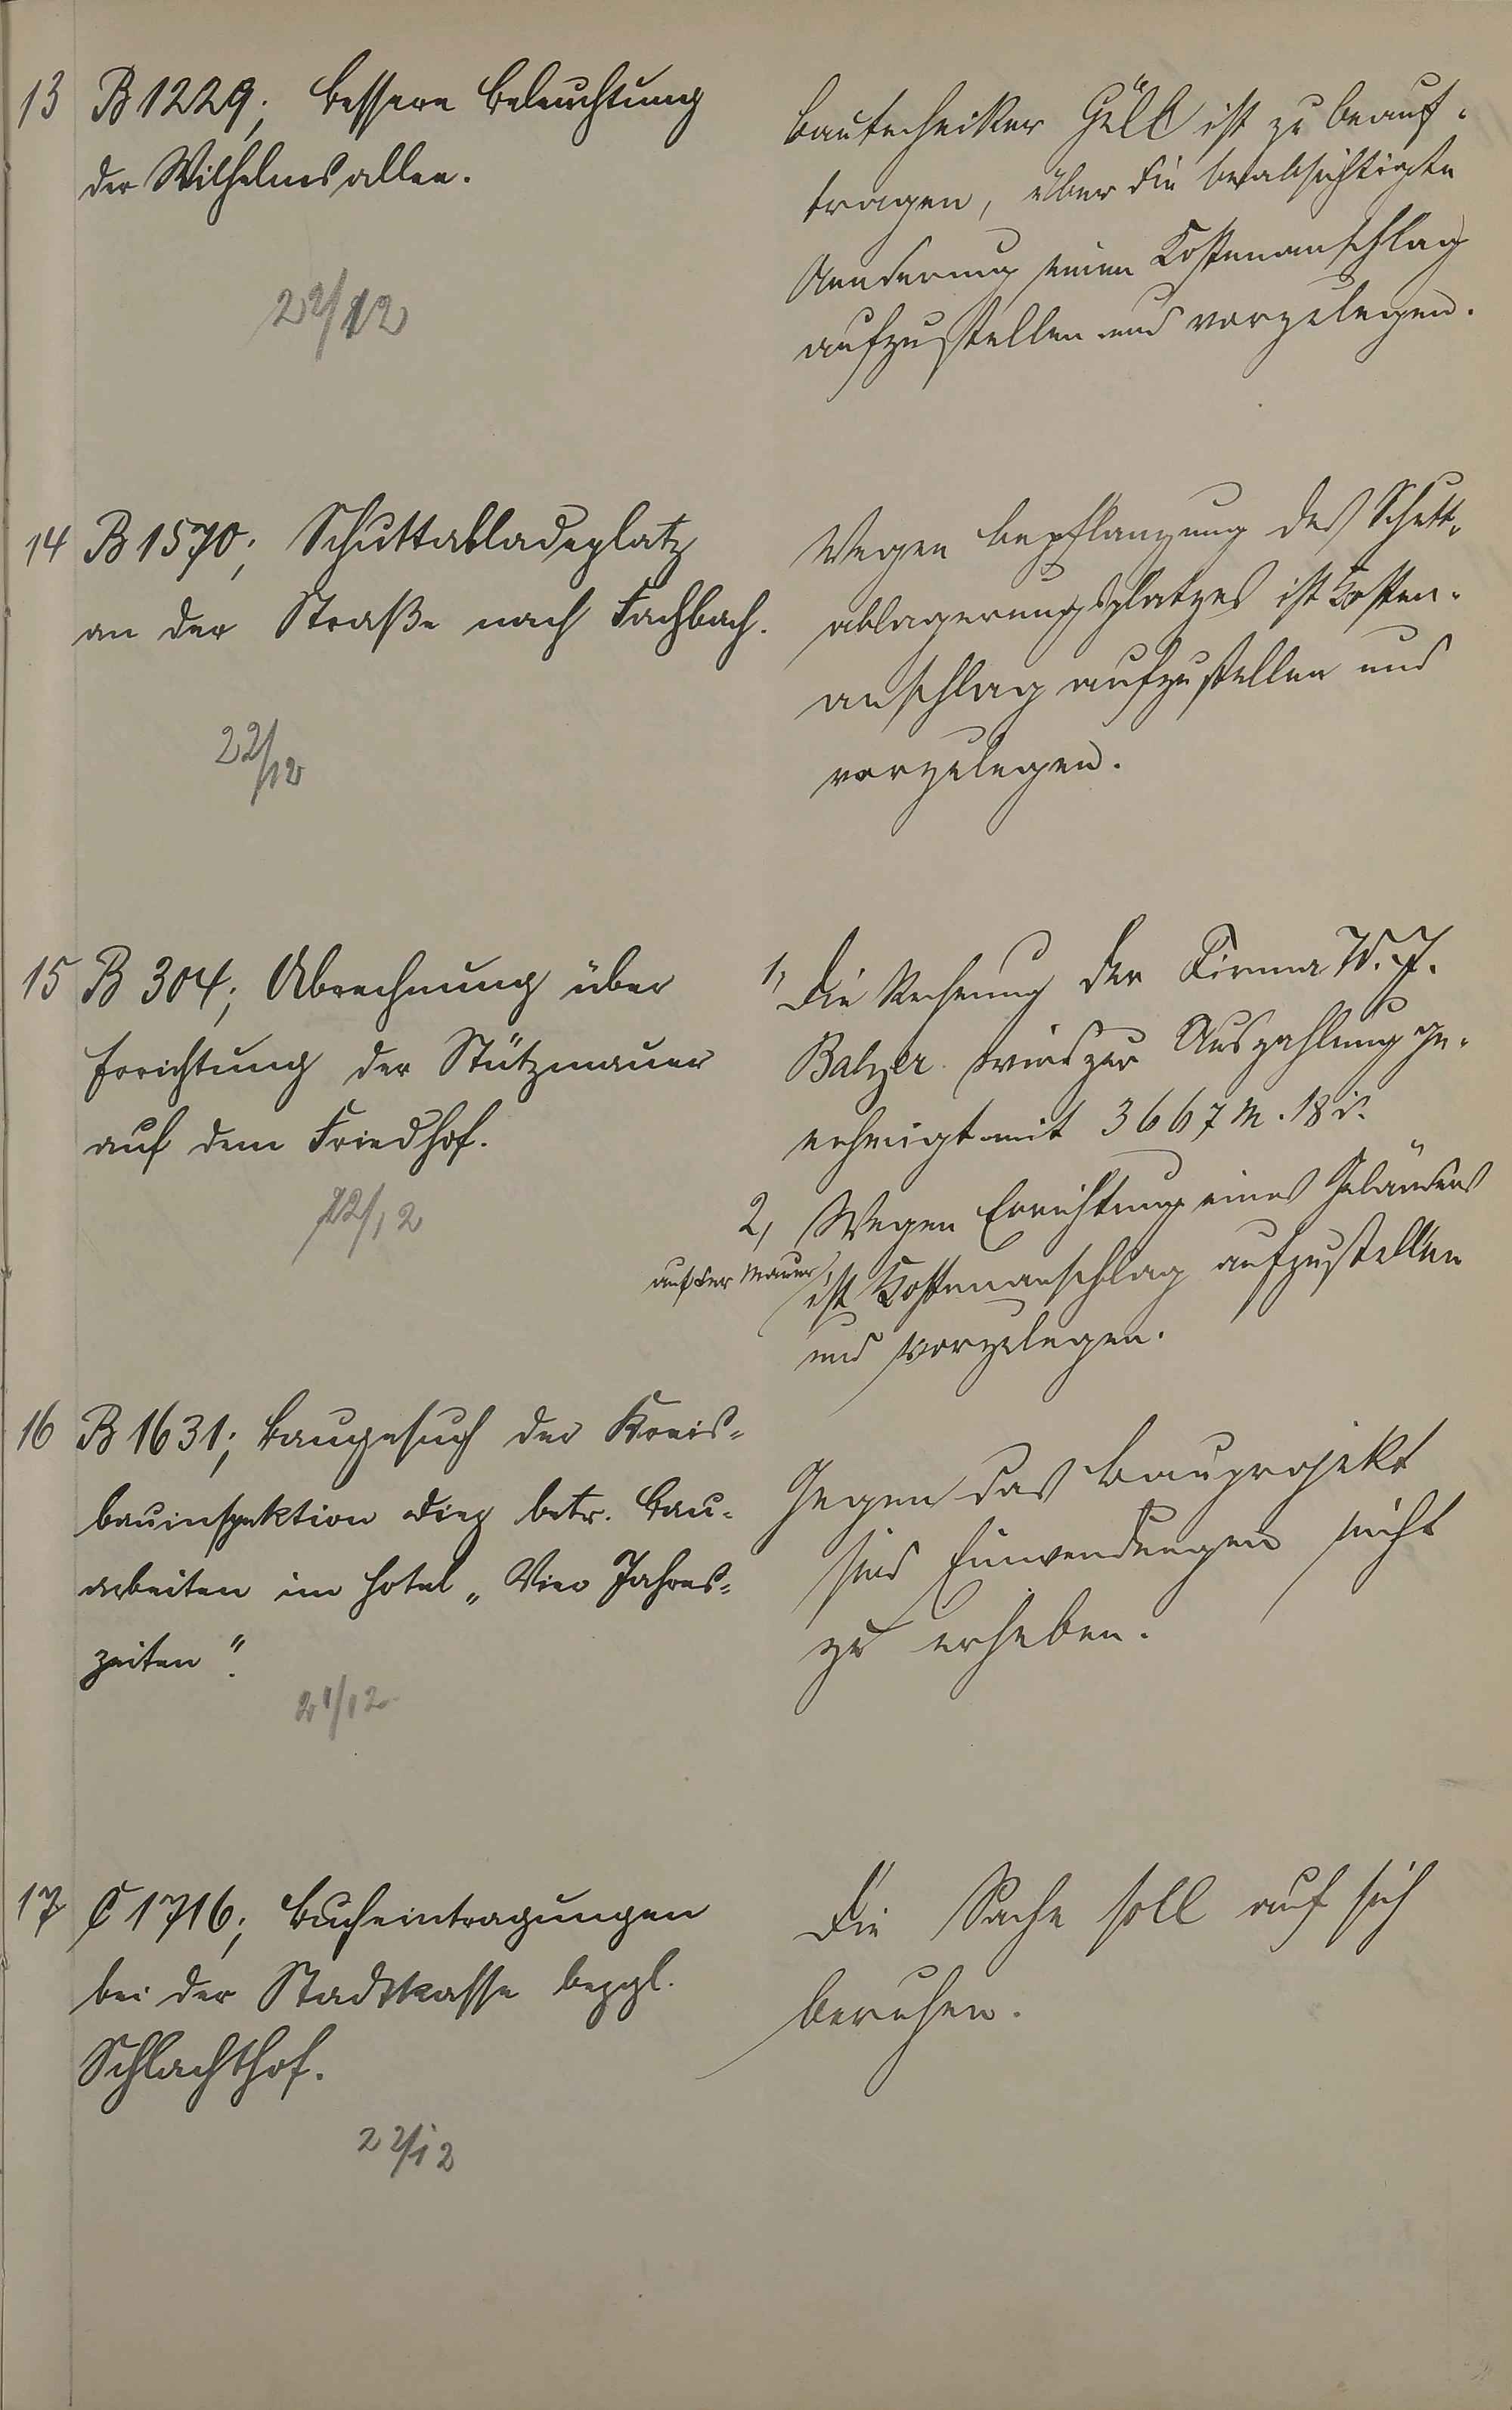 13 B 1229; bessere Beleuchtung
der Wilhelmsallee.
22/12
Bautechniker Göll ist zu beauf-
tragen, über die beabsichtigte
Aenderung einen Kostenanschlag
aufzustellen und vorzulegen.
14 B 1570; Schuttabladeplatz
an der Straße nach Fachbach.
22/12
Wegen Bepflanzung des Schutt-
ablagerungsplatzes ist Kosten-
anschlag aufzustellen und
vorzulegen.
15 B 304; Abrechnung über
Errichtung der Stützmauer
auf dem Friedhof.
22/12
1, Die Rechnung der Firma W. J.
Balzer wird zur Auszahlung ge-
nehmigt mit 3667 M. 18 d.
2, Wegen Errichtung eines Geländers
auf der Mauer ist Kostenanschlag aufzustellen
und vorzulegen.
16 B 1631; Baugesuch der Kreis-
bauinspektion Diez betr. Bau-
arbeiten im Hotel „Vier Jahres-
zeiten“.
21/12
Gegen das Bauprojekt
sind Einwendungen nicht
zu erheben.
17 C 1716; Bucheintragungen
bei der Stadtkasse bezgl.
Schlachthof.
22/12
Die Sache soll auf sich
beruhen.